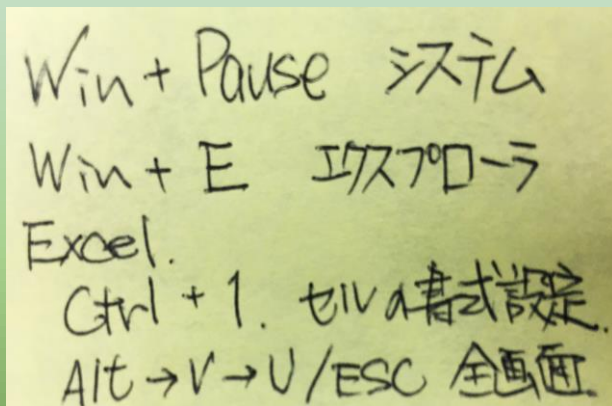 Win + Pause システム
Win + E エクスプローラ
Excel.
Ctrl + 1. セルの書式設定.
Alt → V → U / ESC 全画面.